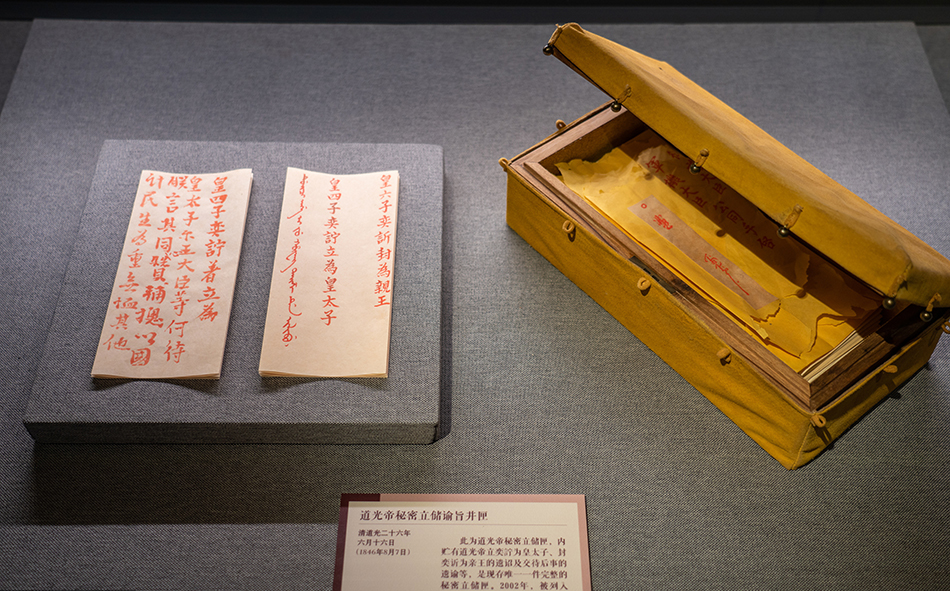 皇四子奕詝著立為
皇太子尔王大臣等何待
朕言其同心贊輔總以國
計民生為重無恤其他
皇六子奕訢封為親王
皇四子奕詝立為皇太子
道光帝秘密立储谕旨并匣
清道光二十六年
六月十六日
(1846年8月7日)
此为道光帝秘密立储匣，内
贮有道光帝立奕詝为皇太子、封
奕䜣为亲王的遗诏及交待后事的
遗谕等，是现存唯一一件完整的
秘密立储匣。2002年，被列入